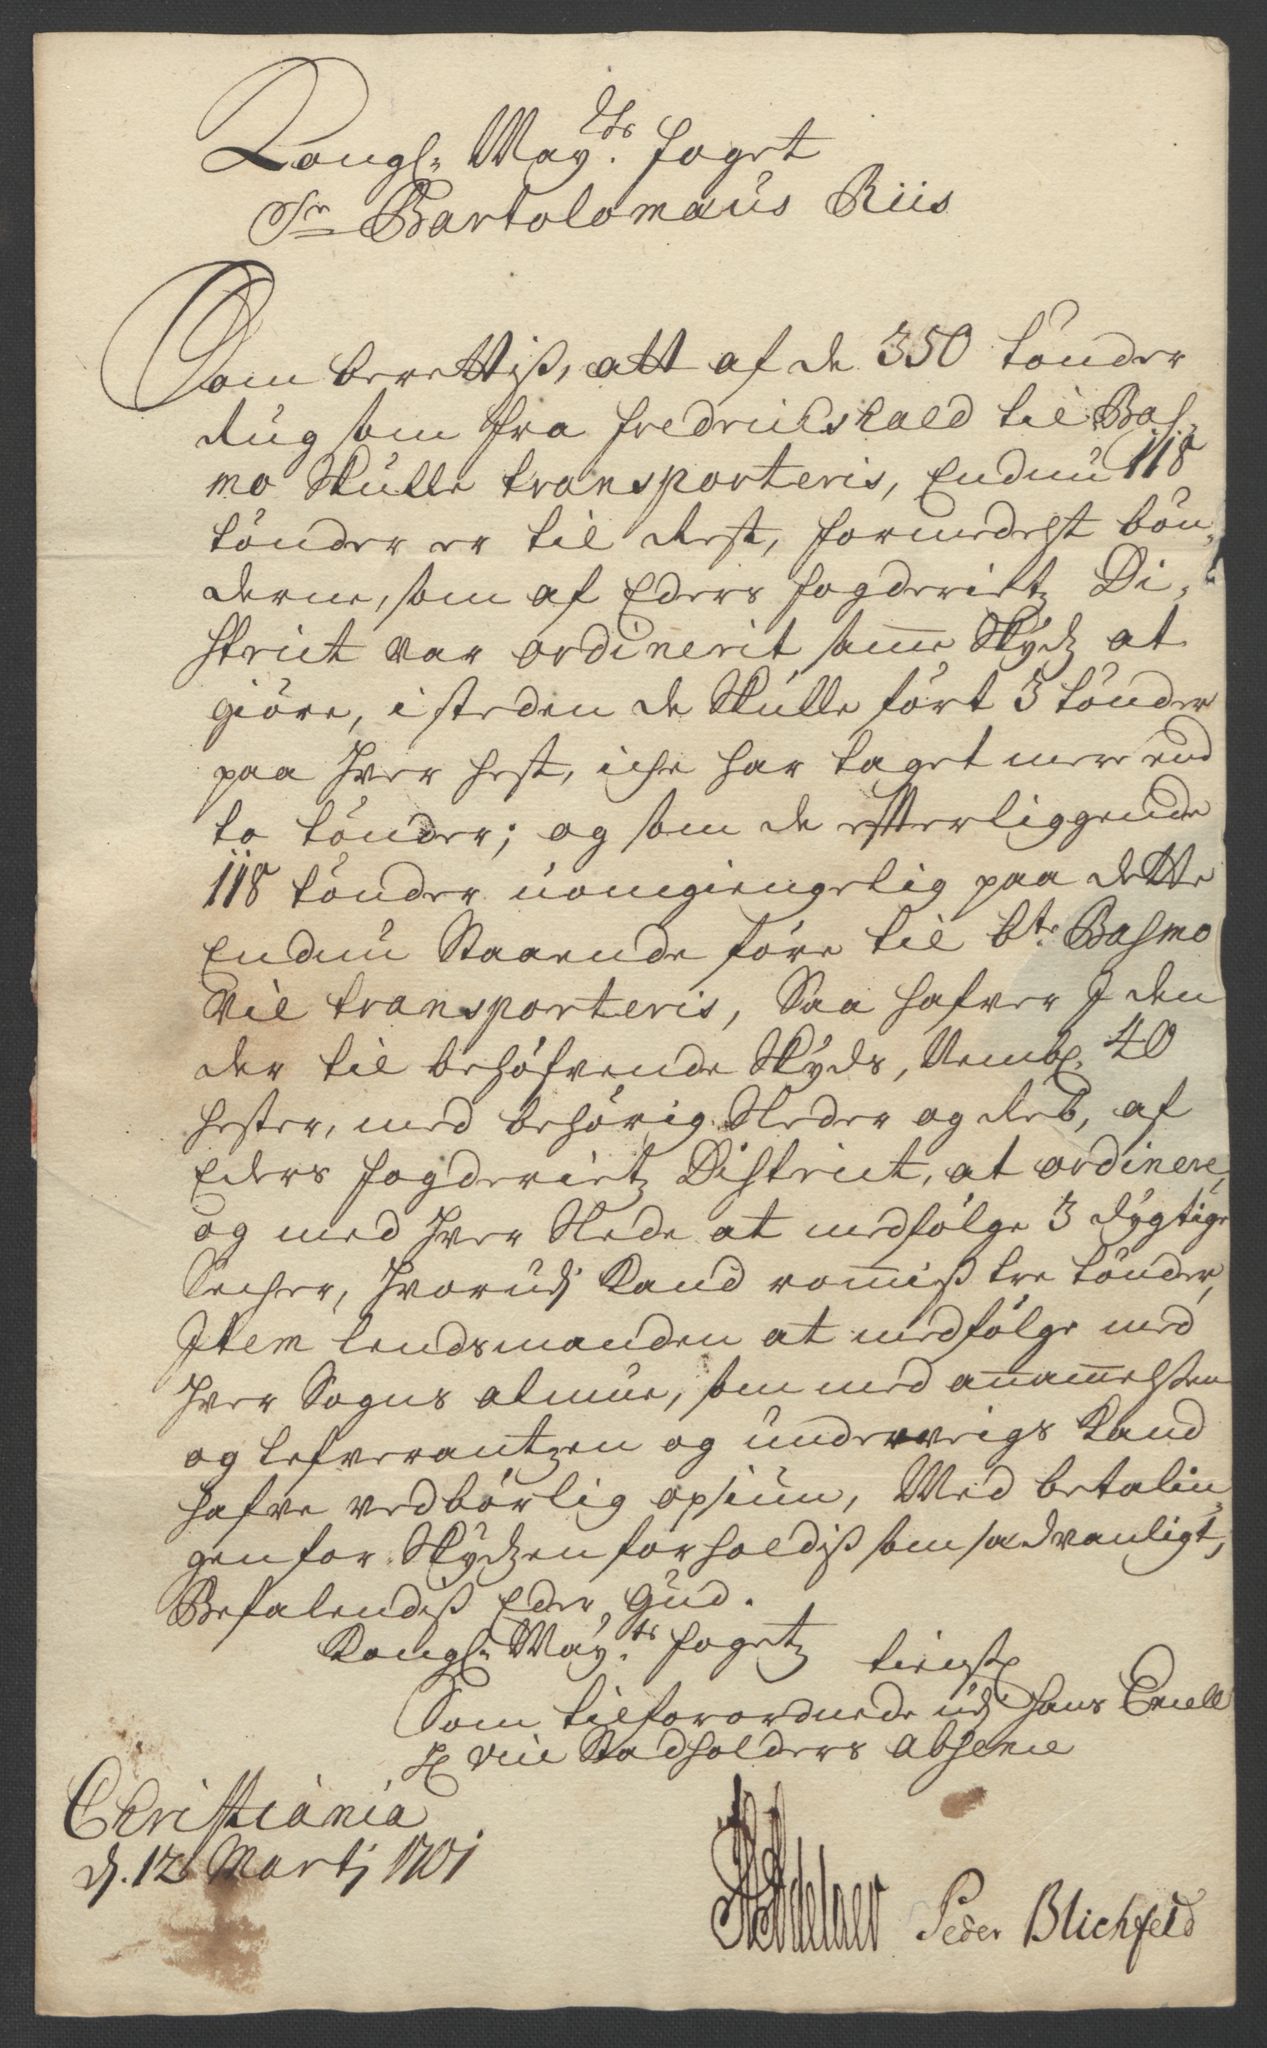 Kongl. May.ts foget
Sr Bartolomæus Riis
Som berettiß, att af de 350 tönder
Rug som fra fredrichshald til Baß-
mo Skulle transporteris, Endnu 118
tönder er til Rest, formedelst bön-
derne, som af Eders fogderietz Di-
strict var ordinerit samme Skydz at
giöre, i steden de Skulle fört 3 tönder
paa hver hest, iche har taget mere end
to tönder; og som de effterliggende
118 tönder uomgiengelig paa dette
Endnu Staaende före til bte Basmo
vil transporteris, Saa hafver I den
der til behöfvende Skyds, Nembl. 40
hester, med behörig Sleder og Reb, af
Eders fogderietz District, at ordinere,
og med hver Slede at medfölge 3 dygtige
Secher, hvorudj Kand rommiß tre tönder,
Item Lendsmanden at medfölge med
hver Sogns almue, som med annammelsen
og lefverantzen og underveigs Kand
hafve vedbörlig opsiun, Med betalin-
gen for Skydzen forholdiß som sædvanligt,
Befalendiß Eder Gud.
Kongl. May.ts fogetz tienstl.
Som tilforordnede udj hans Excell
H Vice Stadholders absence
Christiania
d. 12 Martj 1701
Adelaer Peder Blichfeld